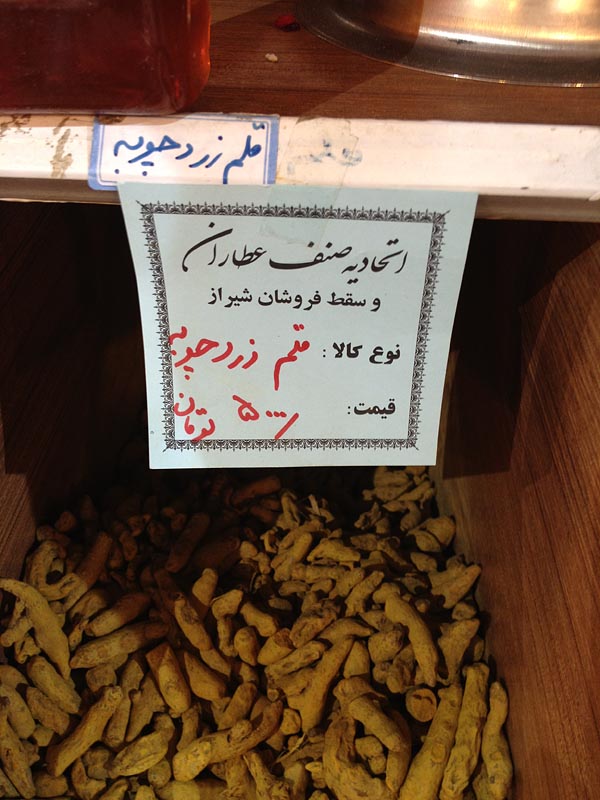 قلم زردچوبه
اتحادیه صنف عطاران
و سقط فروشان شیراز
نوع کالا : قلم زردچوبه
قیمت: ۵۰۰۰/ تومان